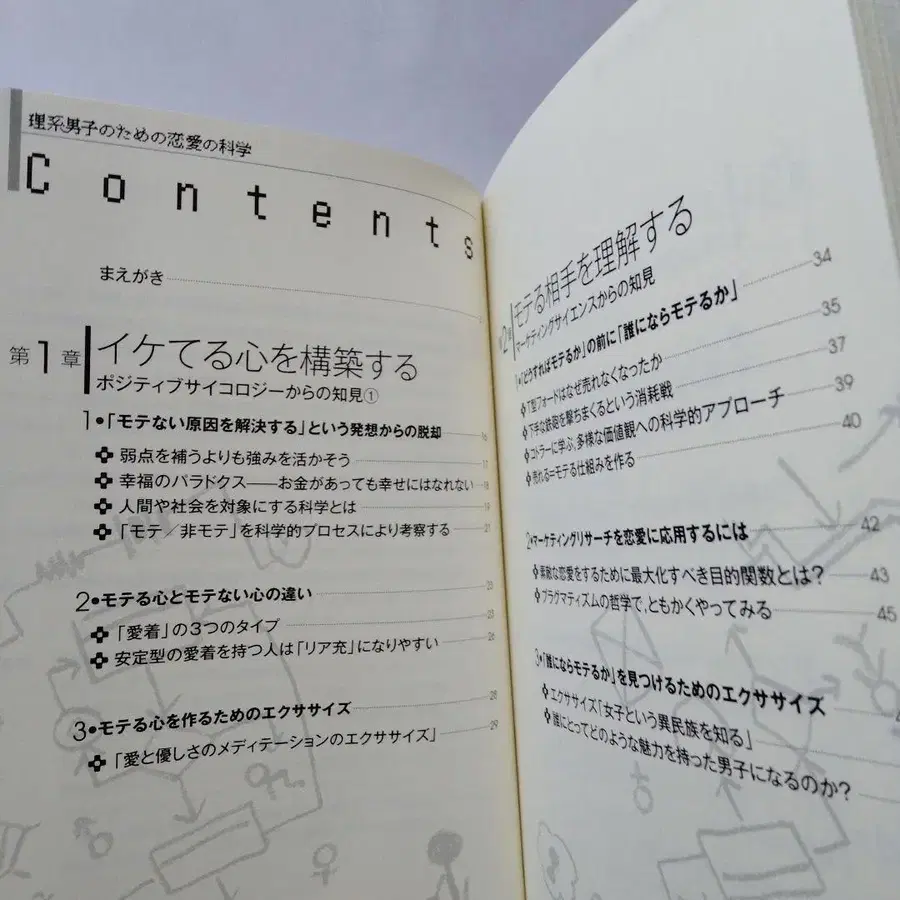 理系男子のための恋愛の科学
Contents
まえがき
第1章 イケてる心を構築する
ポジティブサイコロジーからの知見①
1●「モテない原因を解決する」という発想からの脱却 16
弱点を補うよりも強みを活かそう 17
幸福のパラドクス——お金があっても幸せにはなれない 18
人間や社会を対象にする科学とは 19
「モテ／非モテ」を科学的プロセスにより考察する 21
2●モテる心とモテない心の違い 23
「愛着」の3つのタイプ 25
安定型の愛着を持つ人は「リア充」になりやすい 26
3●モテる心を作るためのエクササイズ 28
「愛と優しさのメディテーションのエクササイズ」 29
第2章 モテる相手を理解する
マーケティングサイエンスからの知見
1●「どうすればモテるか」の前に「誰にならモテるか」 34
T型フォードはなぜ売れなくなったか 35
下手な鉄砲を撃ちまくるという消耗戦 37
コトラーに学ぶ、多様な価値観への科学的アプローチ 39
売れる=モテる仕組みを作る 40
2●マーケティングリサーチを恋愛に応用するには 42
素敵な恋愛をするために最大化すべき目的関数とは? 43
プラグマティズムの哲学で、ともかくやってみる 45
3●「誰にならモテるか」を見つけるためのエクササイズ
エクササイズ「女子という異民族を知る」
誰にとってどのような魅力を持った男子になるのか?